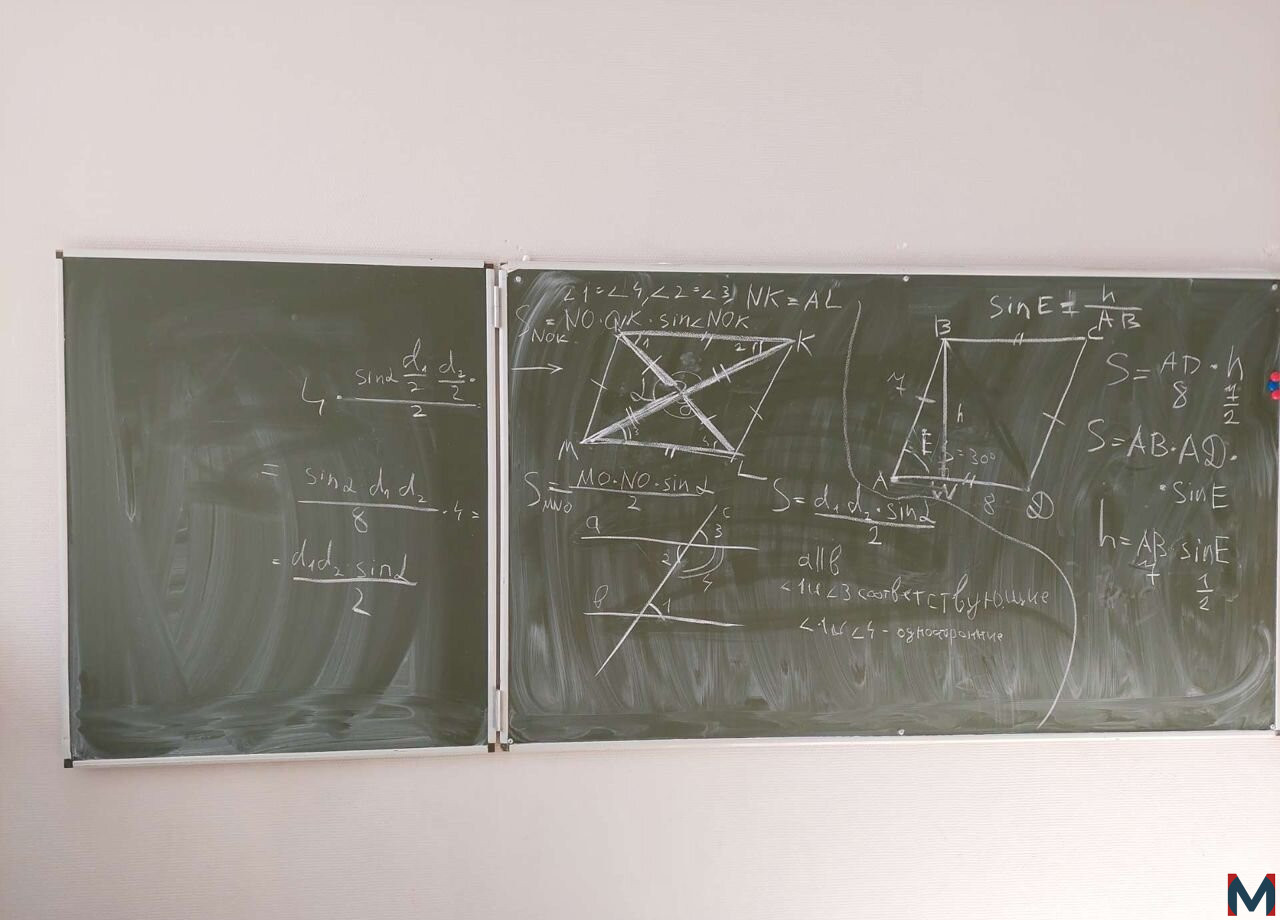 4 · sinα d₁/2 d₂/2 · / 2
= sinα d₁ d₂ / 8 · 4 =
= d₁d₂ sinα / 2
∠1=∠4, ∠2=∠3, NK=AL
S NOK = NO·OK·sin∠NOK
K
1
2
α
O
3
4
M
L
S MNO = MO·NO·sinα / 2
S = d₁ d₂ · sinα / 2
a
c
3
2
4
b
1
a||b
∠1 и ∠3 соответствующие
∠1 и ∠4 - односторонние
sinE = h / AB
B
C
7
h
E
=30°
A
W
8
D
S = AD · h
8 7/2
S = AB·AD·
· sinE
h = AB · sinE
7 1/2
M